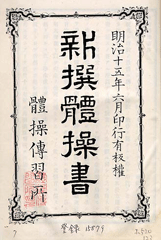 明治十五年六月印行有板權
新撰體操書
體操傳習所
登録 15879